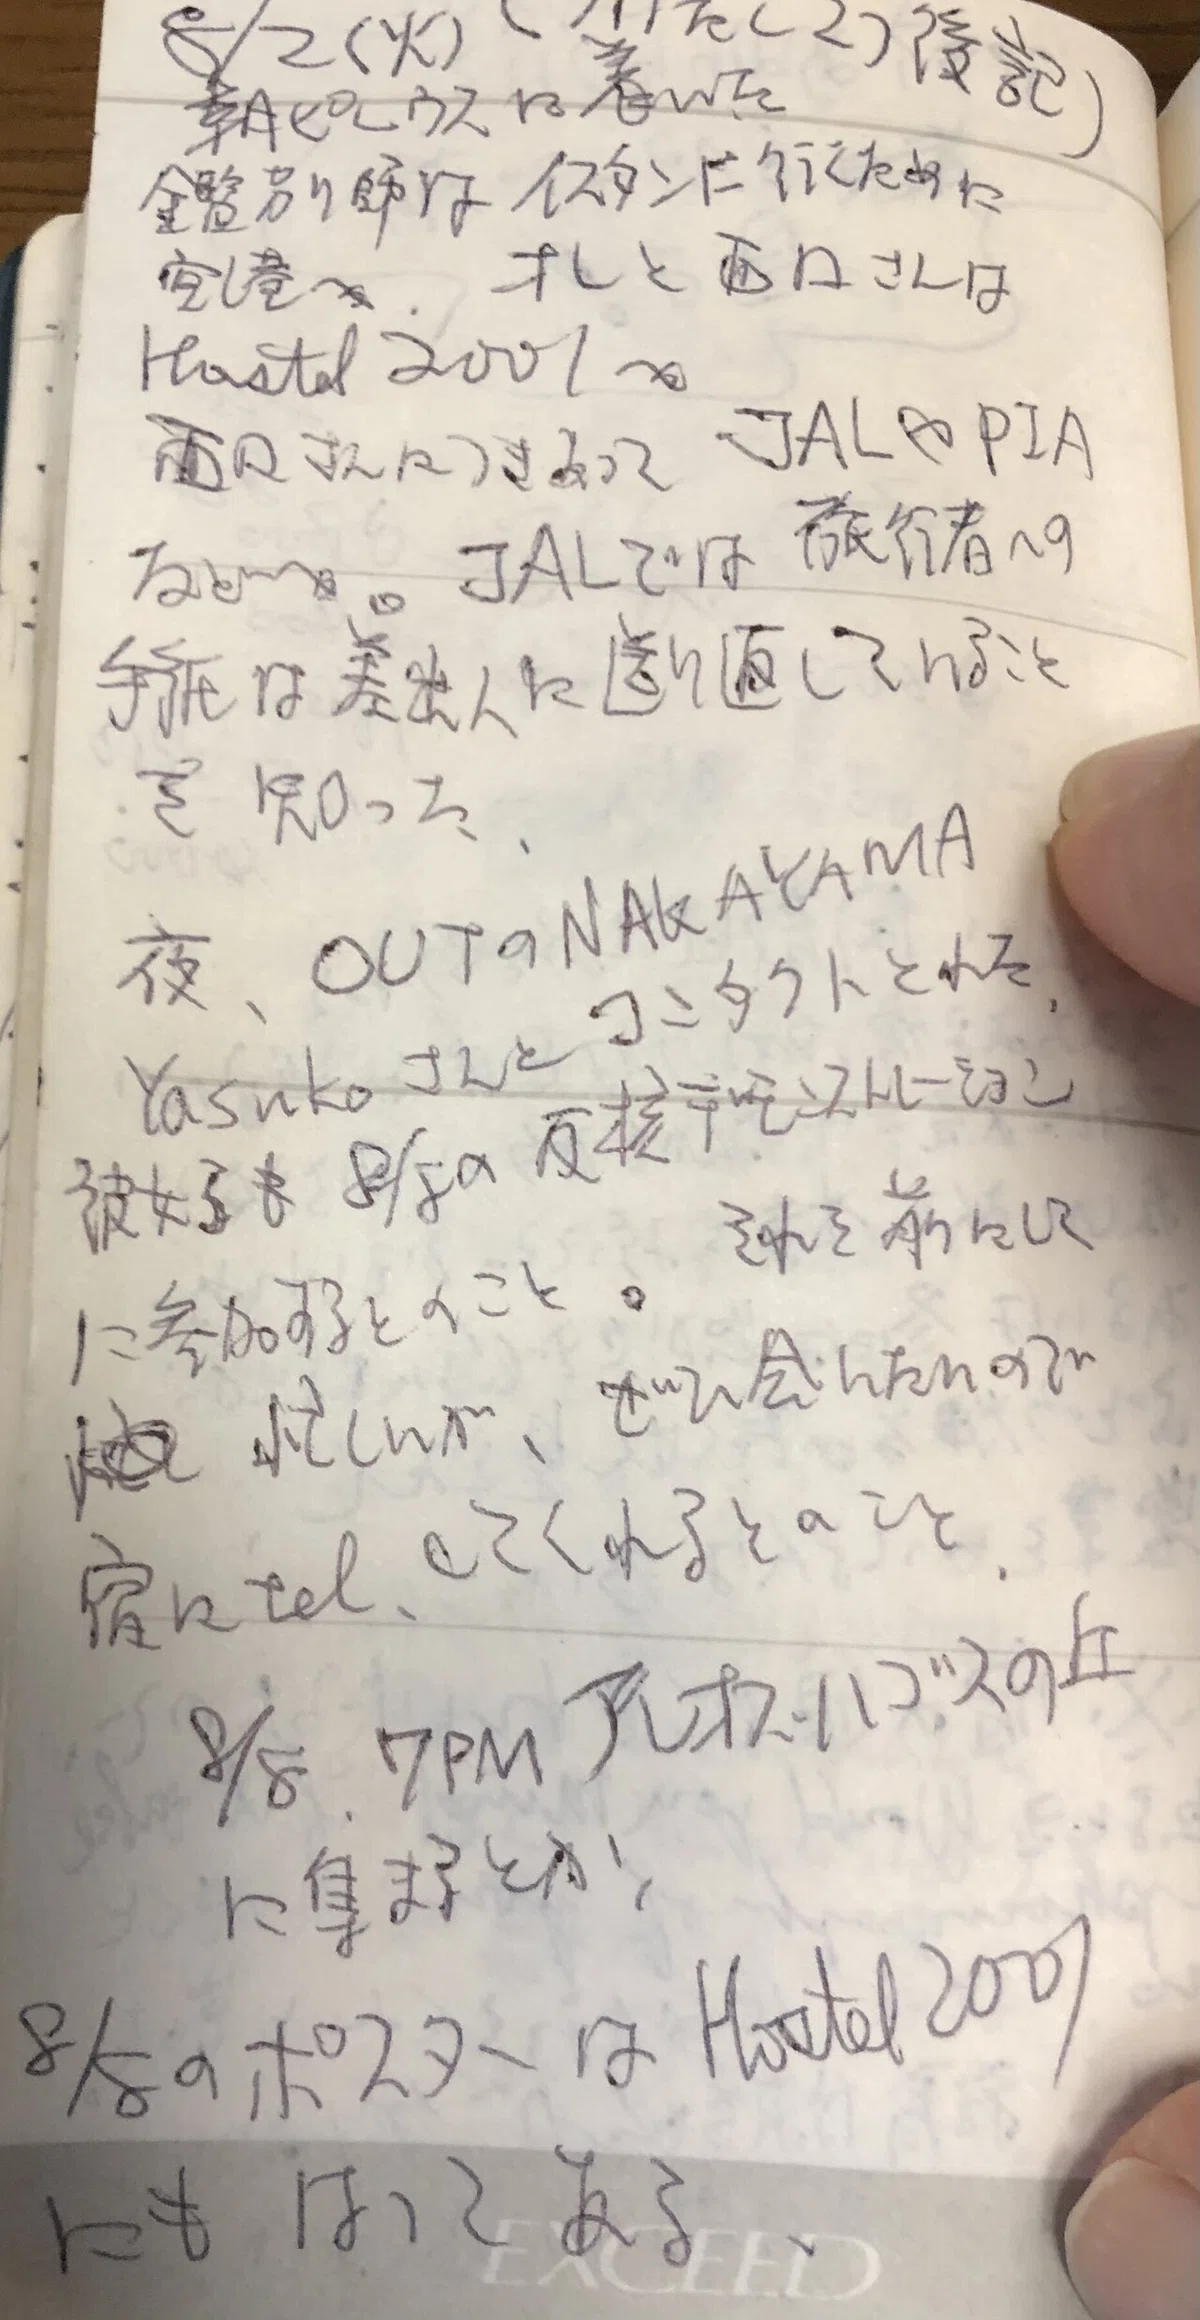 8/2(火) 後記)
朝ピレウスに着いた
鑑別師はイスタンに行くために
空港へ. オレと西口さんは
Hostel 2001へ
西口さんにつきあって JALやPIA
などへ。JALでは旅行者への
手紙は差出人に送り直していること
を知った、
夜、OUTのNAKAYAMA
Yasukoさんとコンタクトとれた、
彼女らも 8/8の反核デモンストレーション
に参加するとのこと。それを前にして
忙しいが、ぜひ会いたいので
宿にtel、してくれるとのこと、
8/8、7PM アレオス・パゴスの丘
に集まるとか、
8/8のポスターは Hostel 2001
にも はってある、
EXCEED